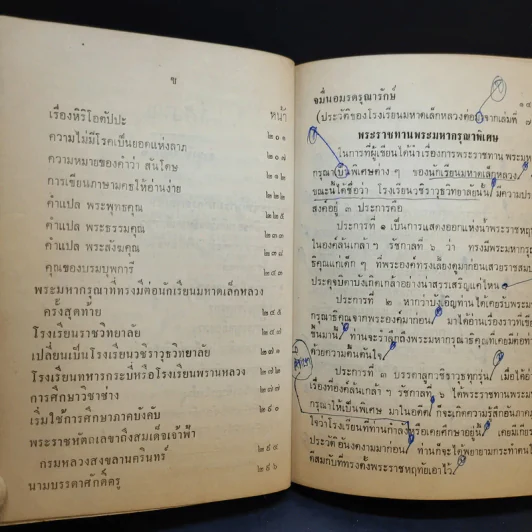 ช
หน้า
เรื่องหิริโอตัปปะ ๒๐๑
ความไม่มีโรคเป็นยอดแห่งลาภ ๒๐๗
ความหมายของคำว่า สันโดษ ๒๑๒
การเขียนภาษามคธให้อ่านง่าย
คำแปล พระพุทธคุณ ๒๒๕
คำแปล พระธรรมคุณ
คำแปล พระสังฆคุณ
คุณของบรมบุพการี ๒๔๓
พระมหากรุณาที่ทรงมีต่อนักเรียนมหาดเล็กหลวง
ครั้งสุดท้าย ๒๔๕
โรงเรียนราชวิทยาลัย ๒๔๗
เปลี่ยนเป็นโรงเรียนวชิราวุธวิทยาลัย ๒๗๑
โรงเรียนทหารกระบี่หรือโรงเรียนพรานหลวง ๒๗๒
การศึกษาวิชาช่าง ๒๗๘
เริ่มใช้การศึกษาภาคบังคับ ๒๙๐
พระราชหัตถเลขาถึงสมเด็จเจ้าฟ้า
กรมหลวงสงขลานครินทร์ ๒๙๔
นามบรรดาศักดิ์ครู ๒๙๖
จมื่นอมรดรุณารักษ์
(ประวัติของโรงเรียนมหาดเล็กหลวงต่อจากเล่มที่ ๗
พระราชทานพระมหากรุณาพิเศษ
ในการที่ผู้เขียนได้นำเรื่องการพระราชทาน พระมห
กรุณาเป็นพิเศษต่าง ๆ ของนักเรียนมหาดเล็กหลวง
ขณะนี้ได้ชื่อว่า โรงเรียนวชิราวุธวิทยาลัยนั้น มีความประ
สงค์อยู่ ๓ ประการคือ
ประการที่ ๑ เป็นการแสดงออกแห่งน้ำพระราชหฤ
ในองค์ล้นเกล้าฯ รัชกาลที่ ๖ ว่า ทรงมีพระมหากรุ
ธิคุณแก่เด็ก ๆ ที่พระองค์ทรงเลี้ยงดูมาก่อนเสวยราชสม
ประดุจบิดาบังเกิดเกล้าอย่างน่าสรรเสริญแค่ไหน
ประการที่ ๒ หากว่าบังเอิญท่านได้เคยรับพระม
กรุณาธิคุณจากพระองค์มาก่อน มาได้อ่านเรื่องราวที่เขีย
ขึ้นมานี้ ท่านจะรำลึกถึงพระมหากรุณาธิคุณที่เคยมีต่อท่า
ด้วยความตื้นตันใจ
ประการที่ ๓ บรรดาลูกวชิราวุธทุกรุ่น เมื่อได้อ่
เรื่องที่องค์ล้นเกล้าฯ รัชกาลที่ ๖ ได้พระราชทานพระม
กรุณาให้เป็นพิเศษ มาในอดีต ก็จะเกิดความรู้สึกขึ้นภายใน
ใจว่าโรงเรียนที่ท่านกำลังหรือเคยศึกษาอยู่นี้ เคยมีเกียร
ประวัติอันงดงามมาก่อน ท่านก็จะได้พยายามกระทำตนใ
ดีสมกับที่ทรงตั้งพระราชหฤทัยเอาไว้